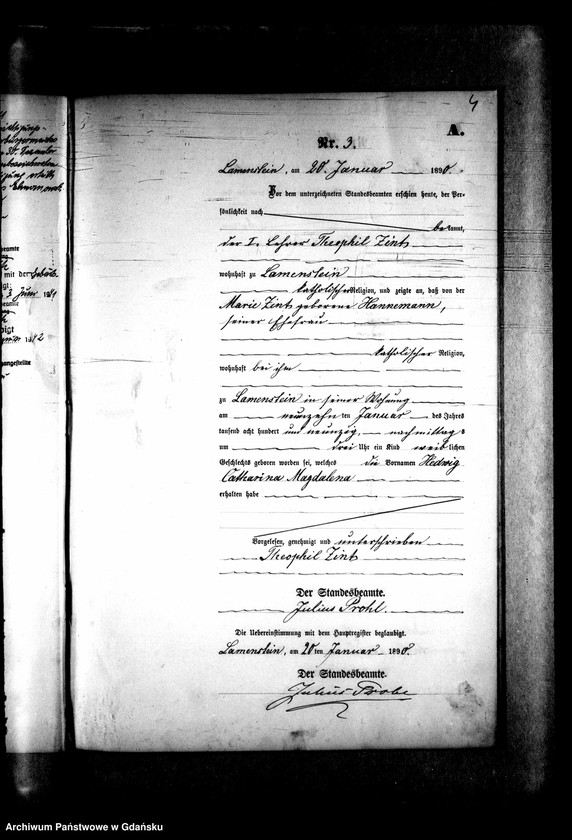 4
A.
Nr. 3.
Lamenstein, am 20. Januar 1890.
Vor dem unterzeichneten Standesbeamten erschien heute, der Per-
sönlichkeit nach
bekannt,
der I. Lehrer Theophil Zint
wohnhaft zu Lamenstein
katholischer Religion, und zeigte an, daß von der
Marie Zint geborene Hannemann,
seiner Ehefrau
katholischer Religion,
wohnhaft bei ihm
zu Lamenstein in seiner Wohnung
am neunzehnten Januar des Jahres
tausend acht hundert und neunzig, nachmittags
um drei Uhr ein Kind weiblichen
Geschlechts geboren worden sei, welches die Vornamen Hedwig
Catharina Magdalena
erhalten habe
Vorgelesen, genehmigt und unterschrieben
Theophil Zint
Der Standesbeamte.
Julius
Die Uebereinstimmung mit dem Hauptregister beglaubigt.
Lamenstein, am 20ten Januar 1890.
Der Standesbeamte.
Julius
Archiwum Państwowe w Gdańsku